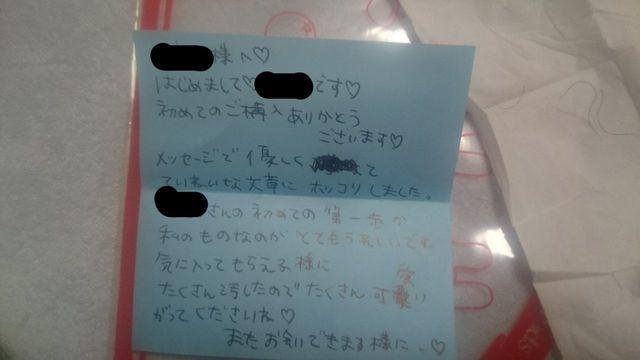 様へ♡
はじめまして♡ です♡
初めてのご購入ありがとう
ございます♡
メッセージで優しく て
ていねいな文章にホッコリしました。
さんの初めての第一歩が
私のものなのがとてもうれしいです。
気に入ってもらえる様に
たくさん したのでたくさん可愛い
がってくださいね♡
またお会いできます様に。♡